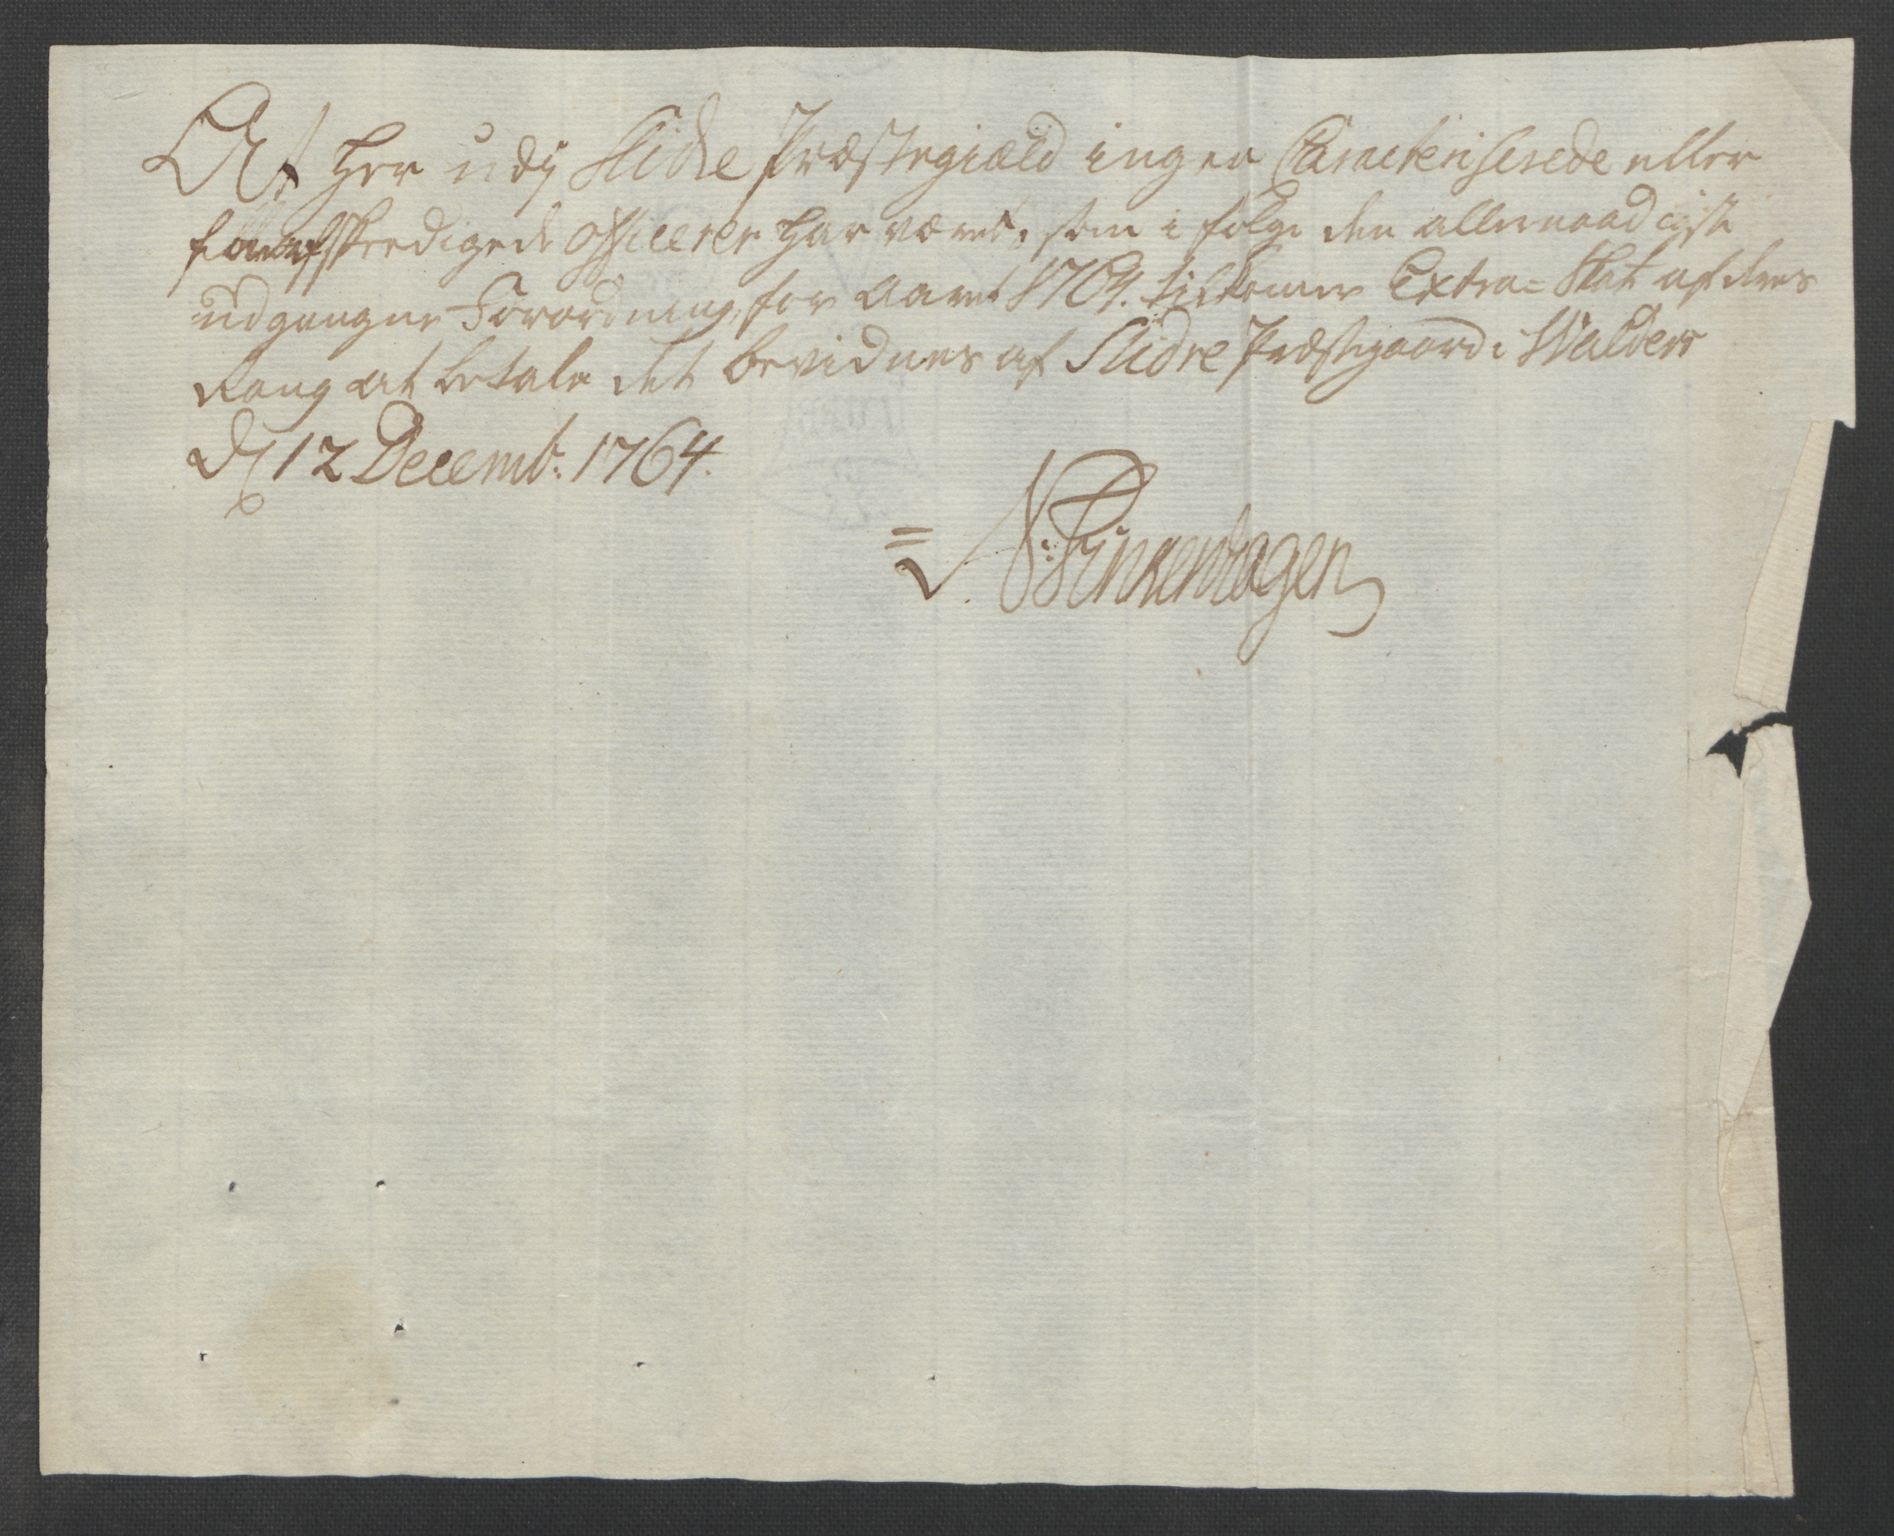 At her udj Slidre Præstegiæld ingen Caracteriserede eller
afskeedigede officerer har været, som i følge den allernaadigste
udgangne Forordning, for Aaret 1764. tilkomer Extra= Skat af deres
Rang at betale det bevidnes af Slidre Præstegaard i Walders
d 12 Decemb: 1764.
N: Pinkenhagen